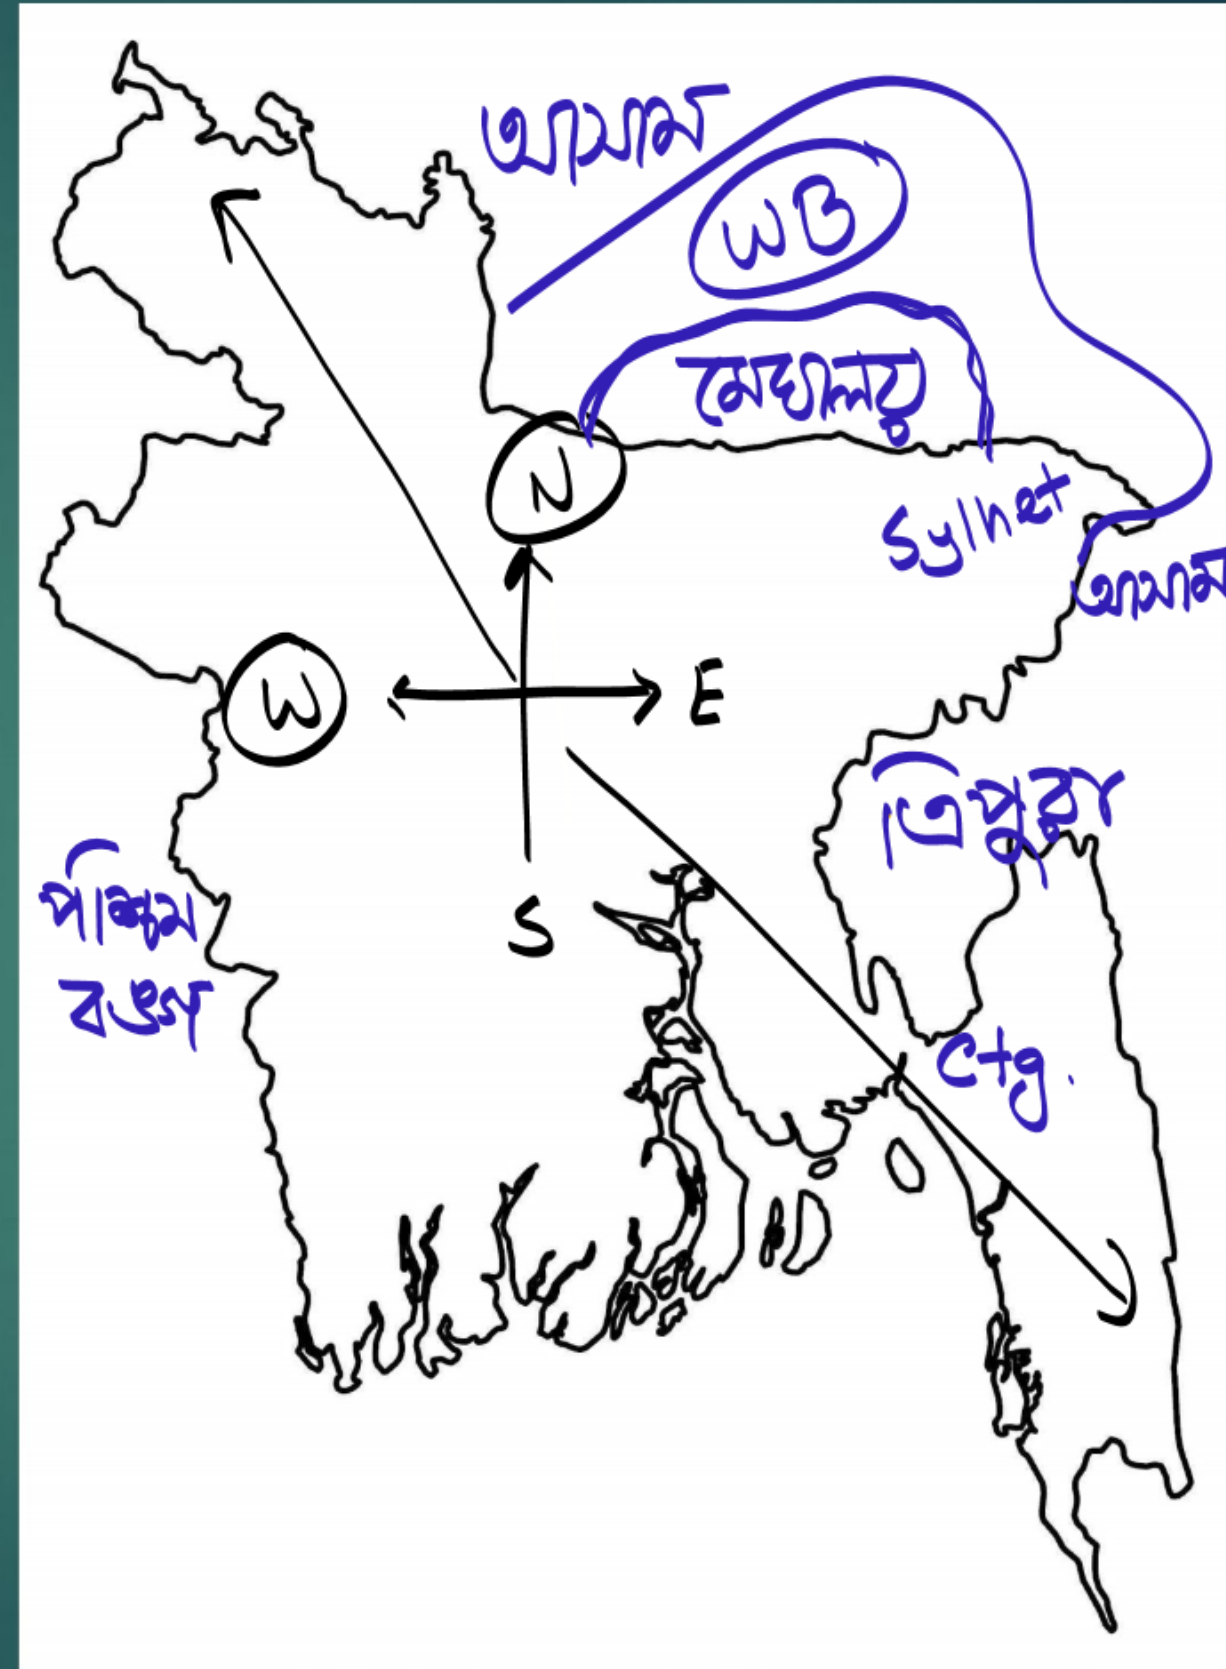 আসাম
WB
মেঘালয়
N
Sylhet
আসাম
W
E
ত্রিপুরা
S
পশ্চিম
বঙ্গ
Ctg.